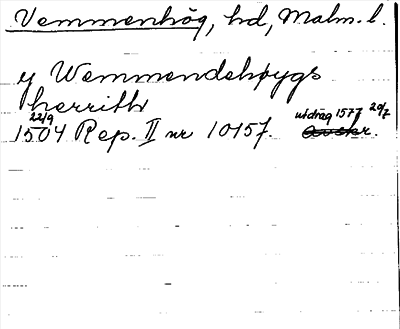 Vemmenhög, hd, Malm. l.
y Wemmendehøygs
herrith
22/9
1504 Rep. II nr 10157. utdrag 1577 20/7
Avskr.